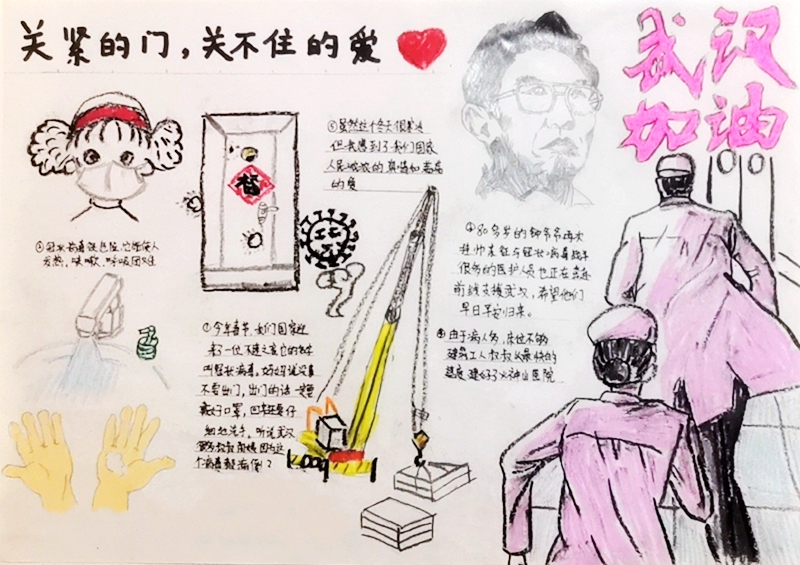 关紧的门，关不住的爱
武汉
加油
⑤虽然这个冬天很寒冷
但我感到了我们国家
人民浓浓的真情和悠悠
的爱
福
冠状病毒很危险，它能使人
发热、咳嗽、呼吸困难
①今年春节，我们国家迎
来了一位不速之客它的名字
叫冠状病毒，妈妈说没事
不要出门，出门的话一定要
戴好口罩，回家还要仔
细地洗手，听说武汉
很多叔叔阿姨因为这
个病毒都病倒了
80多岁的钟爷爷再次
挂帅出征与冠状病毒战斗
很多的医护人员也正在奔赴
前线支援武汉，希望他们
早日平安归来。
由于病人多，床位不够
建筑工人叔叔以最快的
速度建好了火神山医院